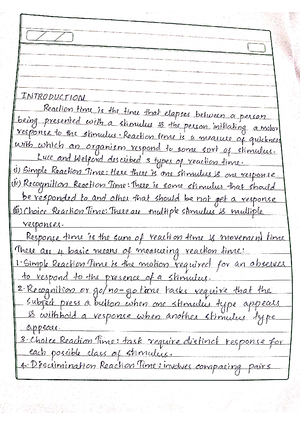 INTRODUCTION
Reaction time is the time that elapses between a person
being presented with a stimulus & the person initiating a motor
response to the stimulus. Reaction time is a measure of quickness
with which an organism respond to some sort of stimulus.
Luce and Welford described 3 types of reaction time.
i) Simple Reaction Time: Here there is one stimulus & one response
ii) Recognition Reaction Time: There is some stimulus that should
be responded to and other that should be not get a response
iii) Choice Reaction Time: There are multiple stimulus & multiple
responses.
Response time is the sum of reaction time & movement time
There are 4 basic means of measuring reaction time:
1. Simple Reaction Time is the motion required for an observer
to respond to the presence of a stimulus.
2. Recognition or go/no-go time tasks require that the
subject press a button when one stimulus type appears
& withhold a response when another stimulus type
appears.
3. Choice Reaction Time: task require distinct response for
each possible class of stimulus.
4. Discrimination Reaction Time: involves comparing pairs